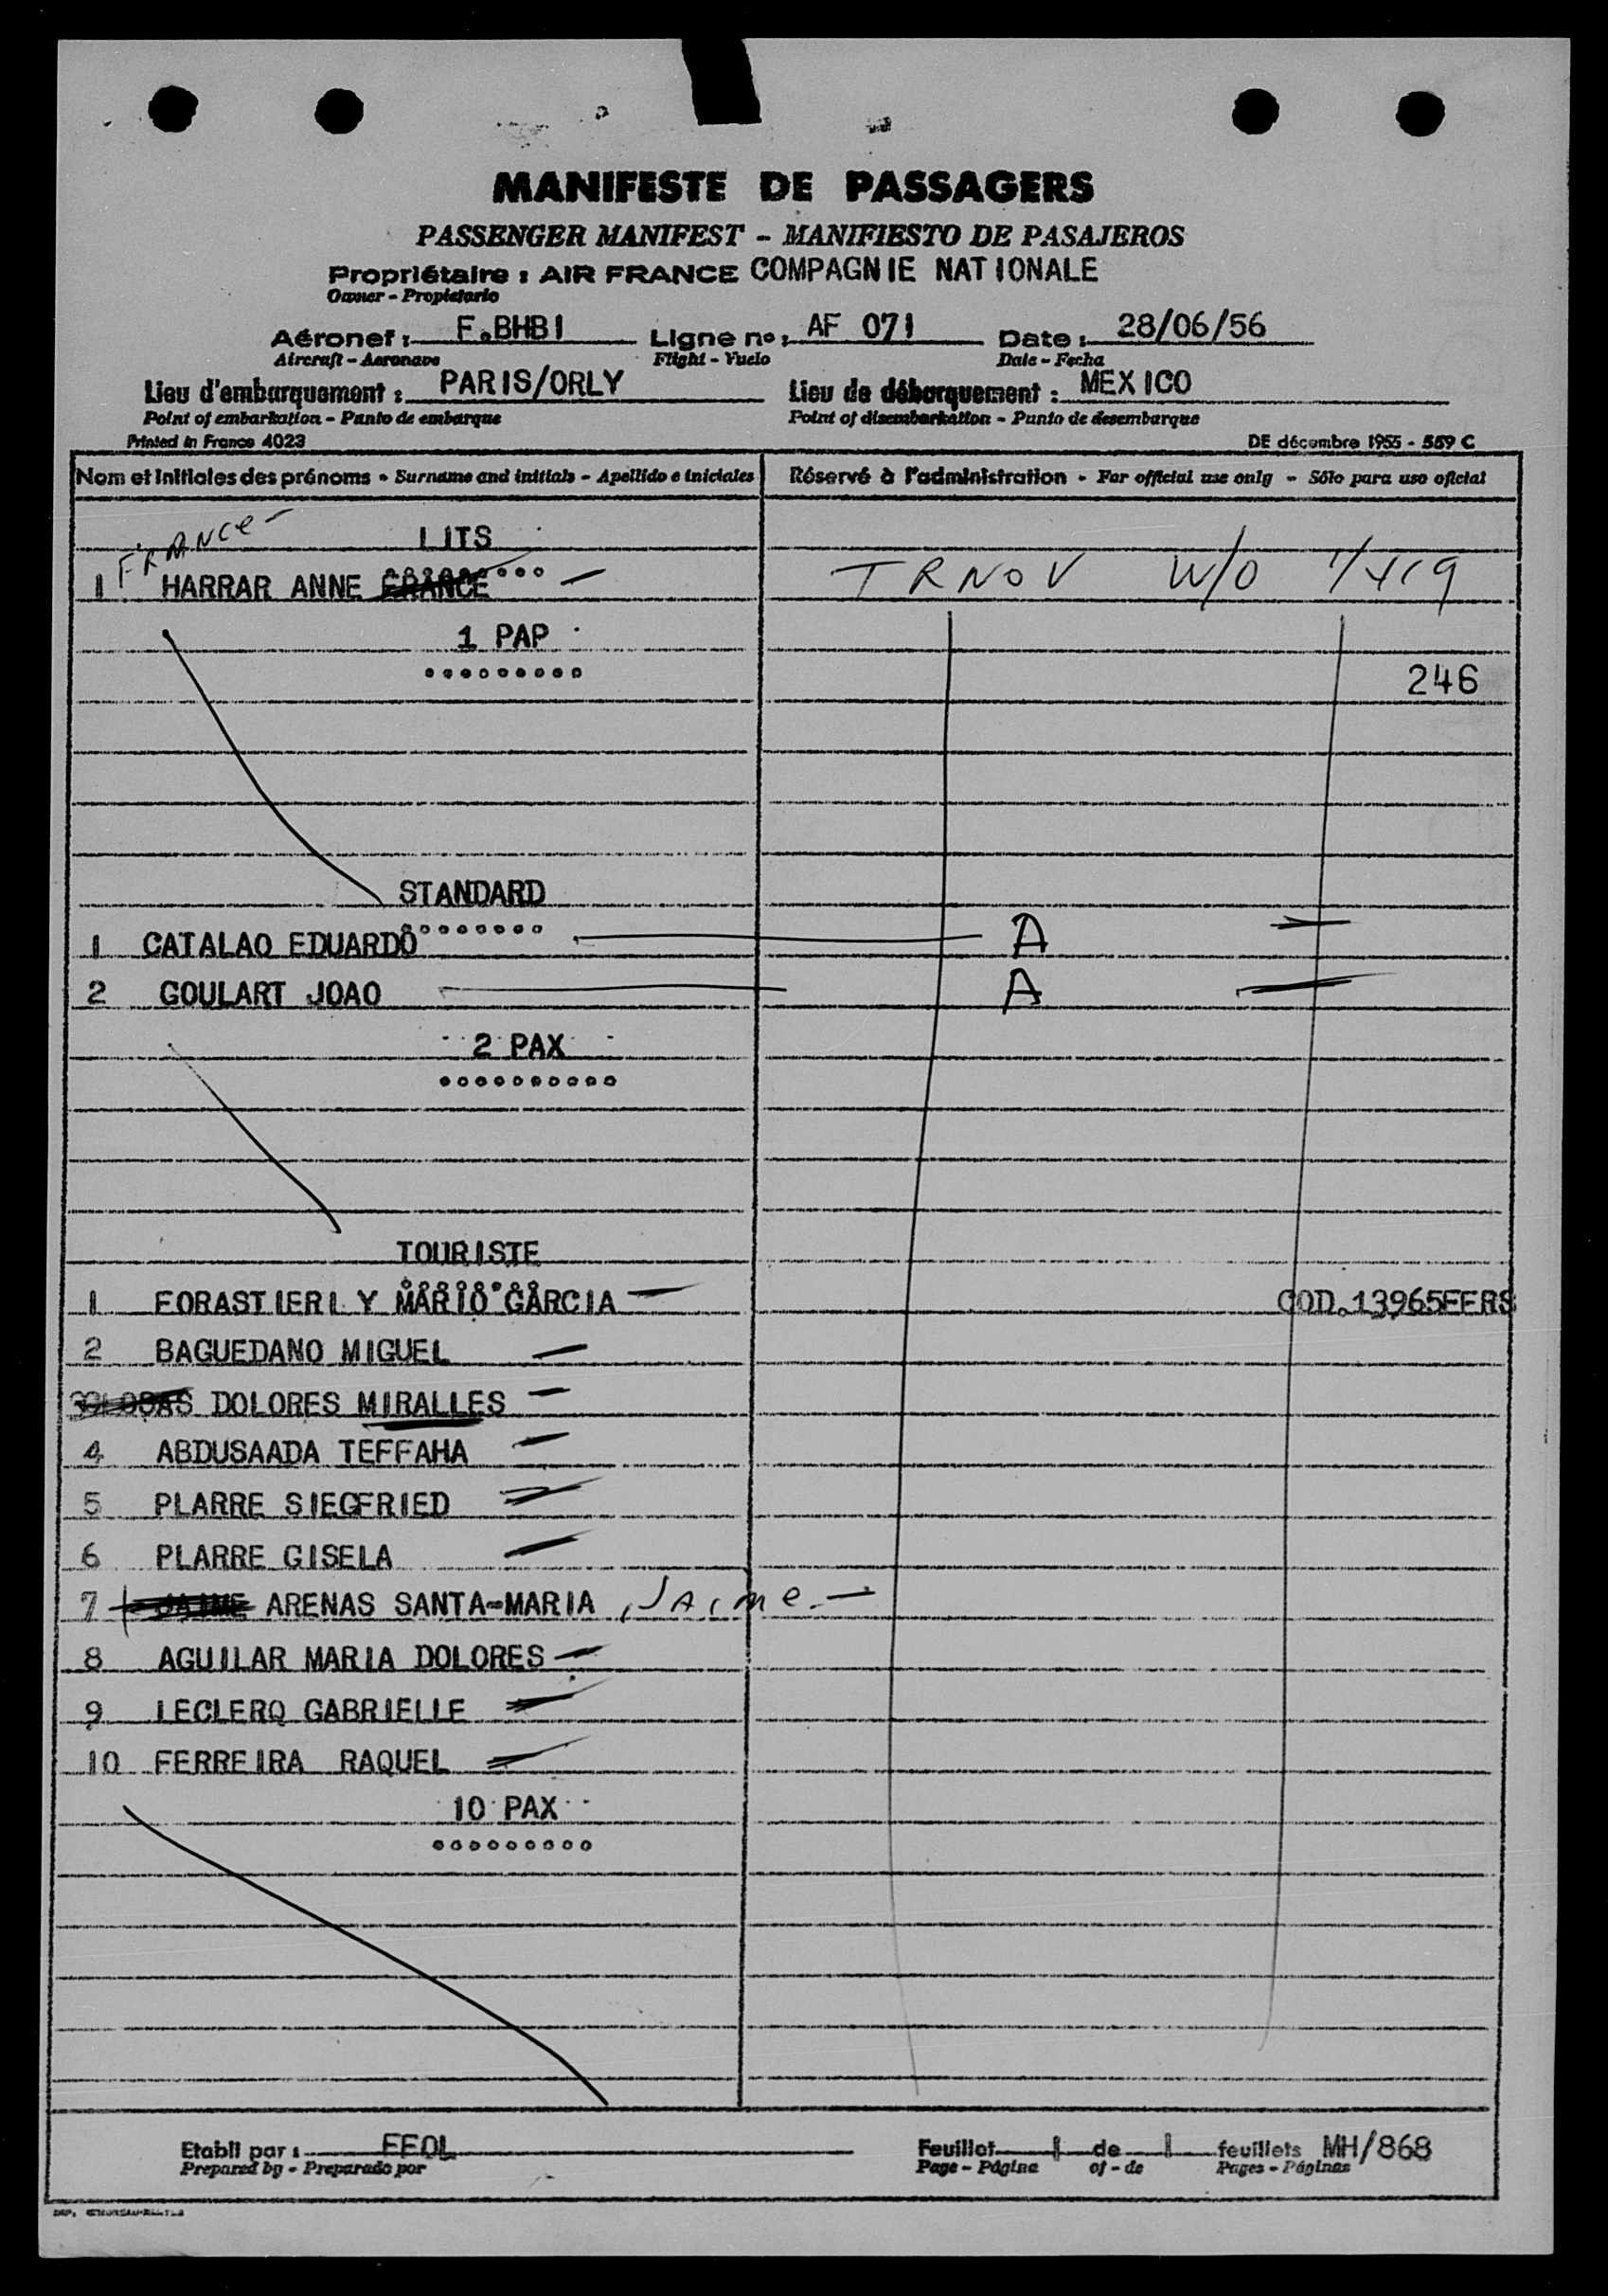 MANIFESTE DE PASSAGERS
PASSENGER MANIFEST - MANIFIESTO DE PASAJEROS
Propriétaire : AIR FRANCE COMPAGNIE NATIONALE
Owner - Propietario
Aéronef : F.BHBI Ligne no : AF 071 Date : 28/06/56
Aircraft - Aeronave Flight - Vuelo Date - Fecha
Lieu d'embarquement : PARIS/ORLY Lieu de débarquement : MEXICO
Point of embarkation - Punto de embarque Point of disembarkation - Punto de desembarque
Printed in France 4023 DE décembre 1955 - 559 C
Nom et initiales des prénoms - Surname and initials - Apellido e iniciales Réservé à l'administration - For official use only - Sólo para uso oficial
FRANCE - LITS
1 HARRAR ANNE FRANCE - TRNOV W/O
1 PAP
246
STANDARD
1 CATALAO EDUARDO A
2 GOULART JOAO A
2 PAX
TOURISTE
1 FORASTIERI Y MARIO GARCIA COD.13965FERS
2 BAGUEDANO MIGUEL
DOLORES MIRALLES
4 ABDUSAADA TEFFAHA
5 PLARRE SIEGFRIED
6 PLARRE GISELA
7 JAIME ARENAS SANTA-MARIA, Jaime -
8 AGUILAR MARIA DOLORES
9 LECLERQ GABRIELLE
10 FERREIRA RAQUEL
10 PAX
Etabli par : FEOL Feuillet 1 de 1 feuillets MH/868
Prepared by - Preparado por Page - Página of - de Pages - Páginas